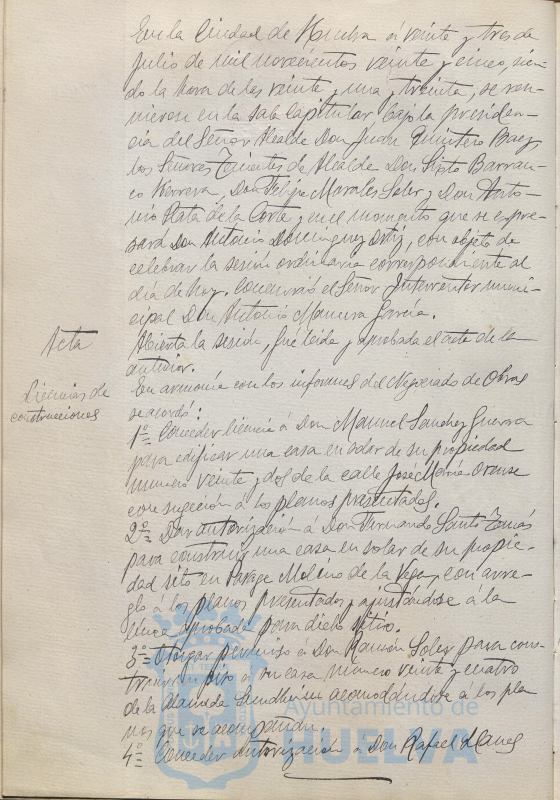 En la Ciudad de Huelva á veinte y tres de
Julio de mil novecientos veinte y cinco, sien-
do la hora de las veinte y una y treinta, se reu-
nieron en la sala Capitular bajo la presiden-
cia del Señor Alcalde Don Juan Quintero Baez
los Señores Tenientes de Alcalde Don Sixto Barran-
co Herrera, Don Felipe Morales Soler y Don Anto-
nio Plata de la Corte y en el momento que se expre-
sará Don Antonio Domínguez Ortiz, con objeto de
celebrar la sesión ordinaria correspondiente al
día de hoy, concurrió el Señor Interventor muni-
cipal Don Antonio Manuera García.
Acta
Abierta la sesión, fué leída y aprobada el acta de la
anterior.
Licencias de
construcciones
En armonía con los informes del Negociado de Obras
se acordó:
1º = Conceder licencia á Don Manuel Sanchez Guerra
para edificar una casa en solar de su propiedad
número veinte y dos de la calle José María Orense
con sugeción á los planos presentados.
2º = Dar autorización á Don Fernando Santo Tomás
para construir una casa en solar de su propie-
dad sito en Parage Molino de la Vega, con arre-
glo á los planos presentados y ajustándose á la
línea aprobada para dicho sitio.
3º = Otorgar permiso á Don Ramón Soler para cons-
truir un piso á su casa número veinte y cuatro
de la Alameda Sundheim acomodándose á los pla
nos que se acompañan.
4º = Conceder autorización á Don Rafael Llanes
Ayuntamiento de
HUELVA